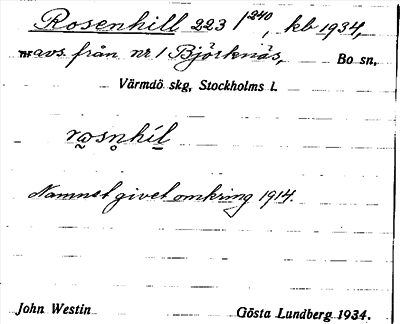 Rosenhill 223 1/240, kb 1934,
avs. från nr 1 Björknäs, Bo sn,
Värmdö skg, Stockholms l.
rɷsn̥híl
Namnet givet omkring 1914.
John Westin Gösta Lundberg 1934.